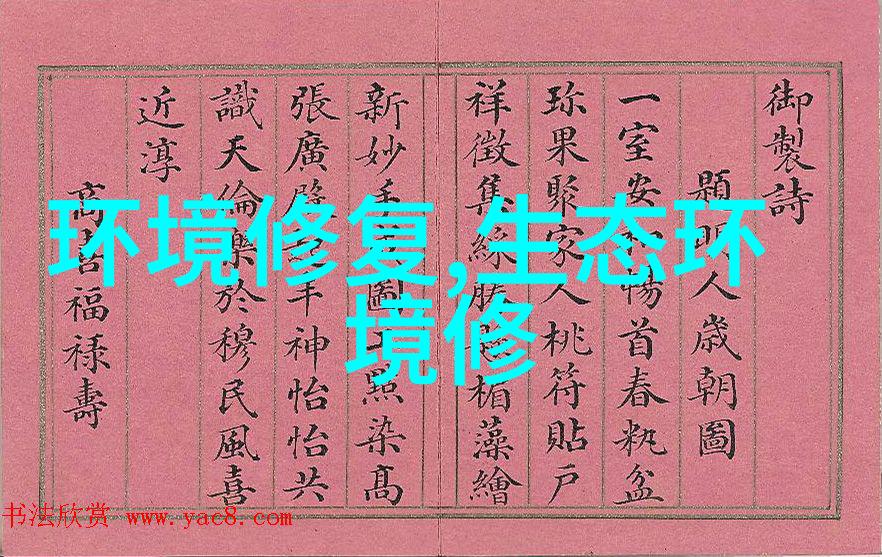 御製詩
題明人歳朝圖
一室安和暢首春盆
珎果聚家人桃符貼戶
祥徵集綵勝楯藻繪
新妙手圖工點染髙
張廣年神怡怡共
識天倫樂於穆民風喜
近淳
喜福禄壽
环境修复,生态环
境修
书法欣赏 www.yac8.com